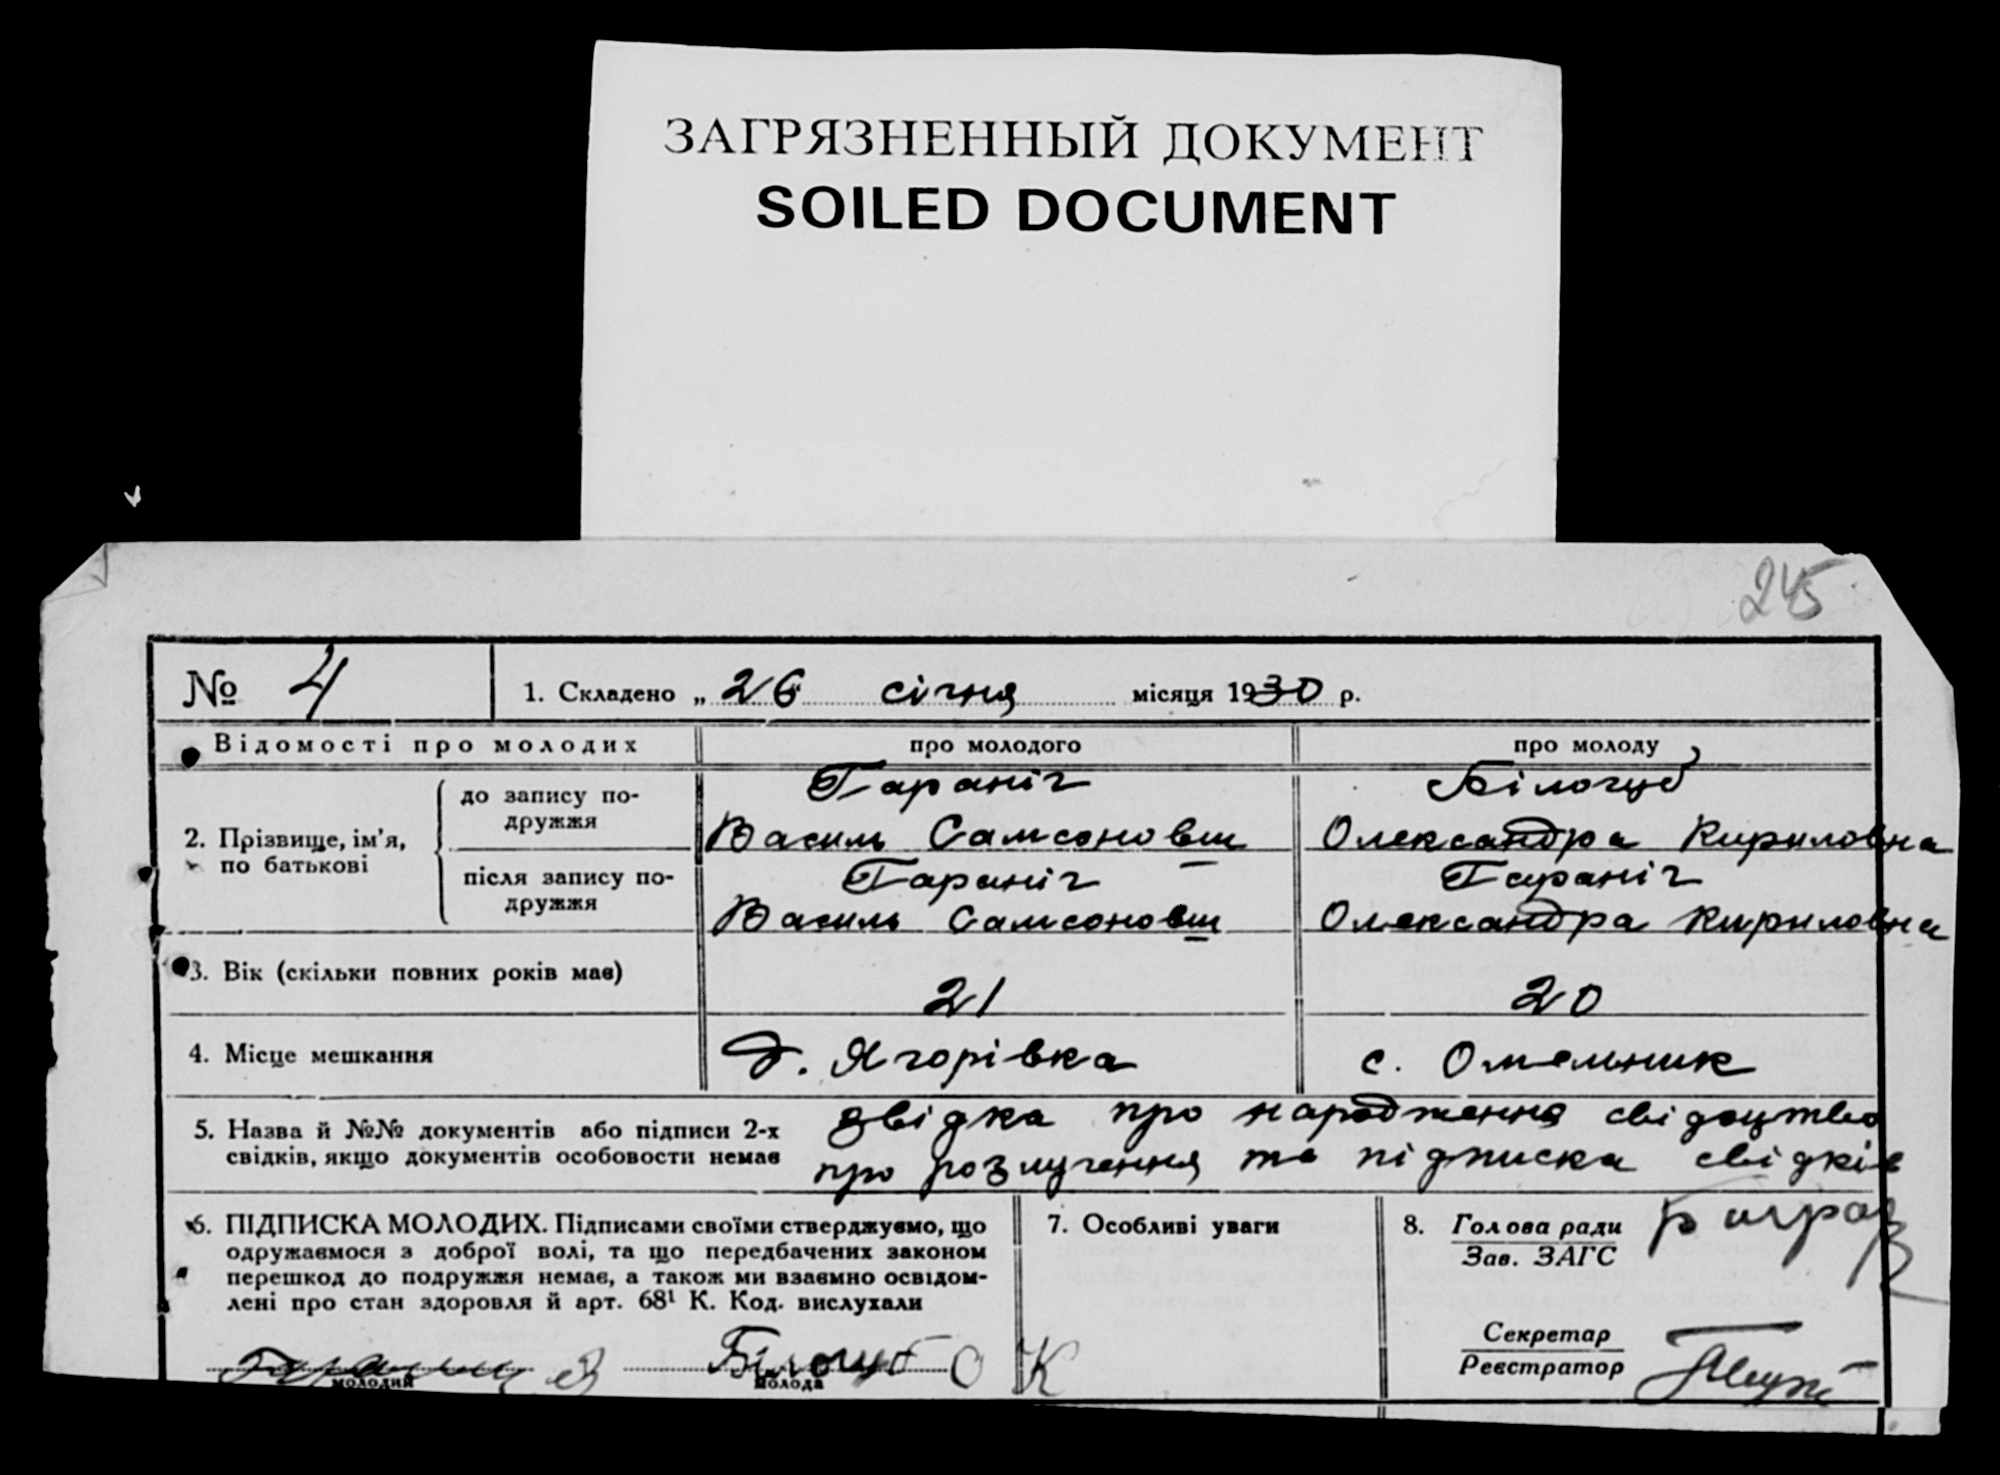 ЗАГРЯЗНЕННЫЙ ДОКУМЕНТ
SOILED DOCUMENT
245
№ 4
1. Складено „ 26 січня місяця 1930 р.
Відомості про молодих
про молодого
про молоду
2. Прізвище, ім'я, по батькові
до запису подружжя
Гараніч
Василь Самсонович
Білогуб
Олександра Кириловна
після запису подружжя
Гараніч
Василь Самсонович
Гараніч
Олександра Кириловна
3. Вік (скільки повних років має)
21
20
4. Місце мешкання
д. Ягорівка
с. Омельник
5. Назва й №№ документів або підписи 2-х
свідків, якщо документів особовости немає
звідка про народження свідоцтво
про розлучення та підписка свідків
6. ПІДПИСКА МОЛОДИХ. Підписами своїми стверджуємо, що
одружаємося з доброї волі, та що передбачених законом
перешкод до подружжя немає, а також ми взаємно освідом-
лені про стан здоровля й арт. 68¹ К. Код. вислухали
молодий
Білогуб О К
молода
7. Особливі уваги
8. Голова ради
Зав. ЗАГС
Секретар
Реєстратор